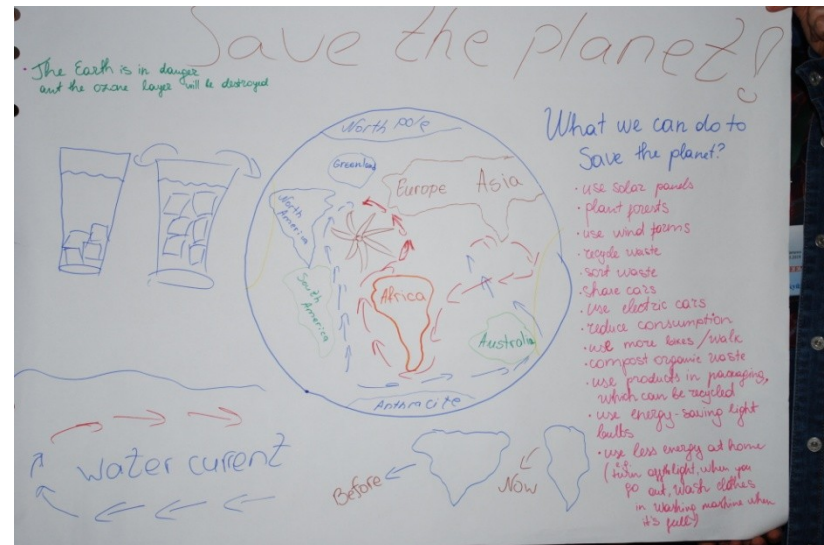 Save the planet!
• The Earth is in danger
and the ozone layer will be destroyed
North pole
Greenland
Europe Asia
North
America
South
America
Africa
Australia
Anthracite
water current
Before
Now
What we can do to
Save the planet?
• use solar panels
• plant forests
• use wind farms
• recycle waste
• sort waste
• share cars
• use electric cars
• reduce consumption
• use more bikes/walk
• compost organic waste
• use products in packaging,
which can be recycled
• use energy-saving light
bulbs
• use less energy at home
(turn off light, when you
go out, wash clothes
in washing machine when
it's full)